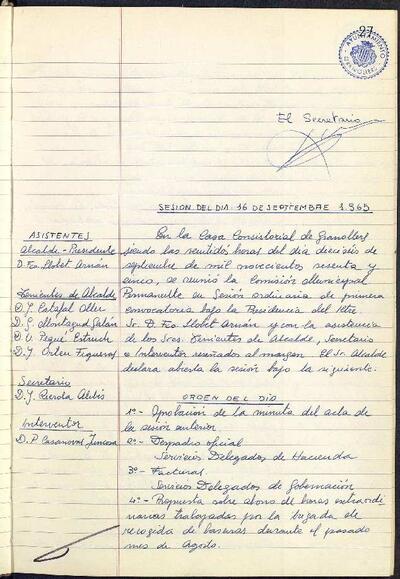 27
AYUNTAMIENTO
El Secretario
SESION DEL DIA 16 DE SEPTIEMBRE 1.965
ASISTENTES
Alcalde-Presidente
D. Fco. Llobet Arnán
Tenientes de Alcalde
D. J. Catafal Oller
D. G. Montagud Galán
D. V. Pagué Estruch
D. J. Orteu Figueras
Secretario
D. J. Alibés
Interventor
D. P. Casanovas Juncosa
En la Casa Consistorial de Granollers
siendo las veintidós horas del día dieciséis de
septiembre de mil novecientos sesenta y
cinco, se reunió la Comisión Municipal
Permanente en Sesión ordinaria de primera
convocatoria bajo la Presidencia del Iltre
Sr. D. Fco. Llobet Arnán y con la asistencia
de los Sres. Tenientes de Alcalde, Secretario
e Interventor reseñados al margen. El Sr. Alcalde
declara abierta la sesión bajo la siguiente.
ORDEN DEL DIA
1º- Aprobación de la minuta del acta de
la sesión anterior
2º- Despacho oficial
Servicios Delegados de Hacienda
3º- Facturas.
Servicios Delegados de Gobernación
4º- Propuesta sobre abono de horas extraordi
narias trabajadas por la brigada de
recogida de basuras durante el pasado
mes de Agosto.